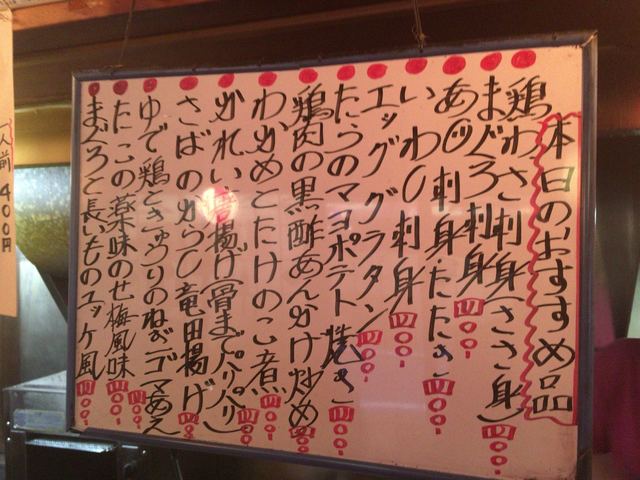 本日のおすすめ品
鶏わさ刺身(ささ身)四〇〇
まぐろ刺身四〇〇
あじ刺身・たたき四〇〇
いわし刺身四〇〇
エッググラタン四〇〇
たらのマヨポテト焼き四〇〇
鶏肉の黒酢あんかけ炒め四〇〇
わかめとたけのこ煮四〇〇
かれい唐揚げ(骨までパリパリ)四〇〇
さばのからし竜田揚げ四〇〇
ゆで鶏ときゅうりのねぎゴマあえ四〇〇
たこの薬味のせ梅風味四〇〇
まぐろと長いものユッケ風四〇〇
人前400円